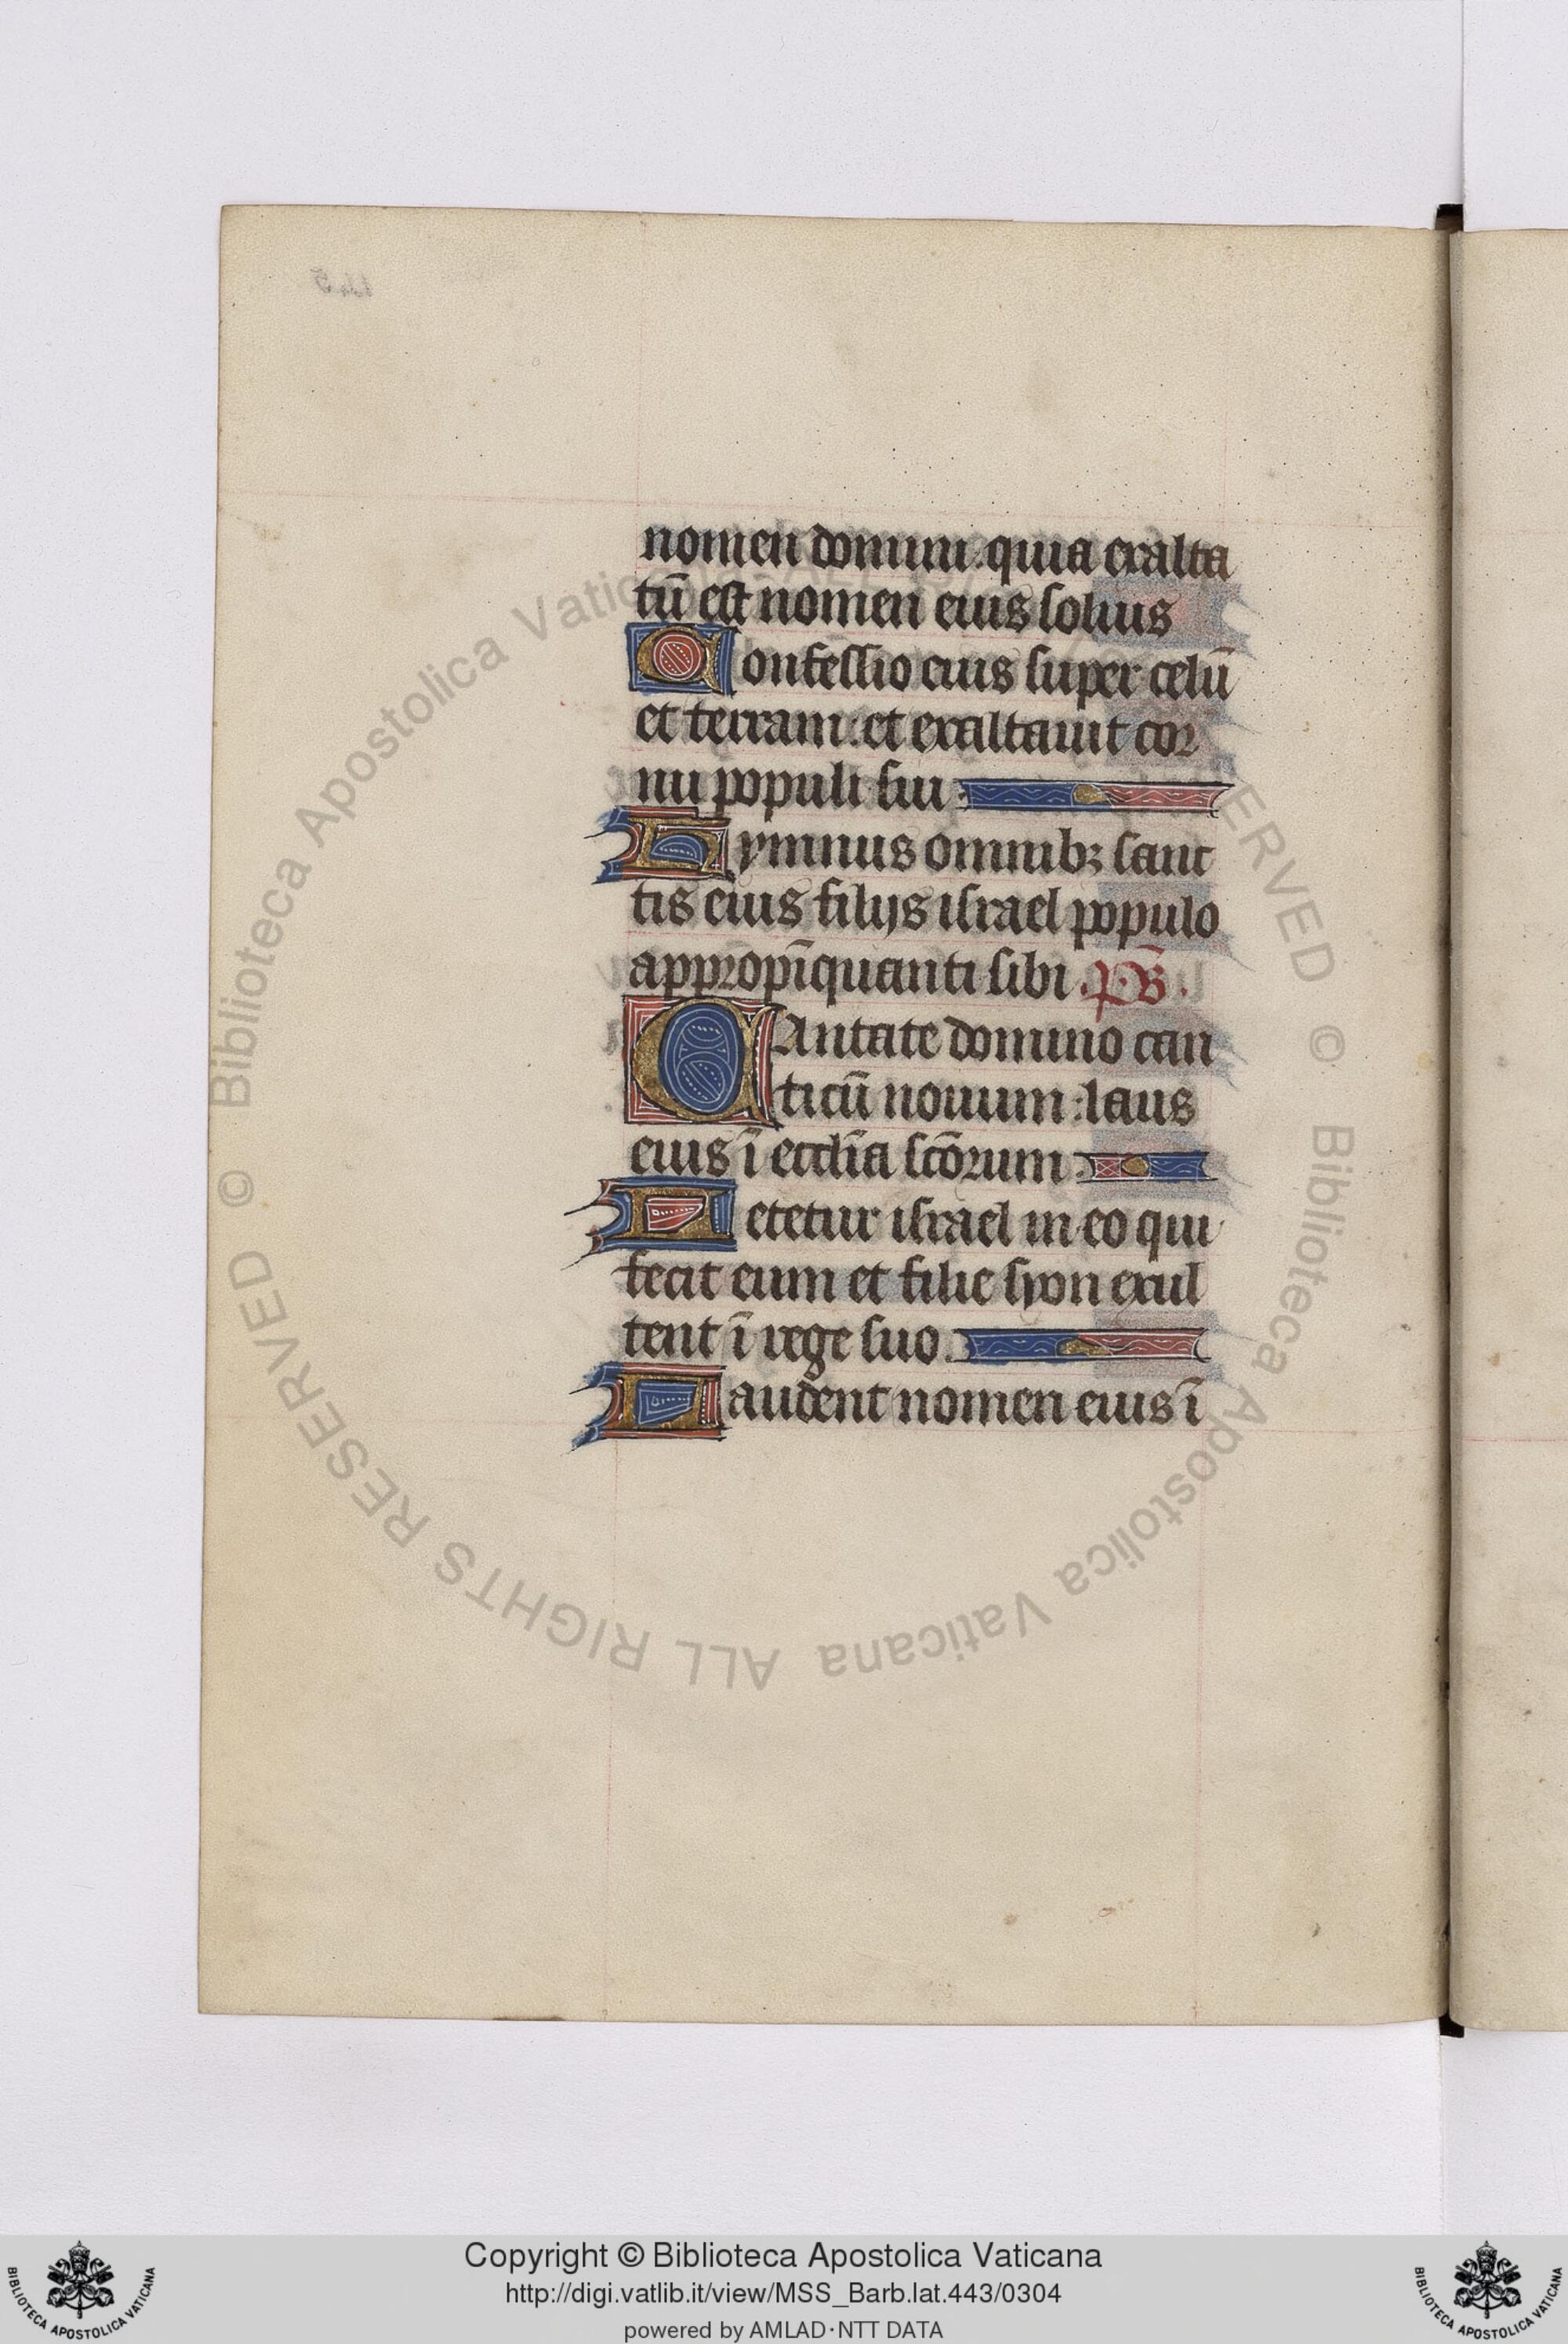 nomen domini. quia exalta
tū est nomen eius solius
Confessio eius super celū
et terram: et exaltauit cor
nu populi sui.
Hymnus omnibꝫ sanc
tis eius filijs israel populo
appropīquanti sibi. pš.
CAntate domino can
ticū nouum: laus
eius ī ecclīa scōrum.
Letetur israel in eo qui
fecit eum et filie syon exul
tent ī rege suo.
Laudent nomen eius ī
© Biblioteca Apostolica Vaticana ALL RIGHTS RESERVED © Biblioteca Apostolica Vaticana ALL RIGHTS RESERVED
Copyright © Biblioteca Apostolica Vaticana
http://digi.vatlib.it/view/MSS_Barb.lat.443/0304
powered by AMLAD·NTT DATA
BIBLIOTECA APOSTOLICA VATICANA
BIBLIOTECA APOSTOLICA VATICANA